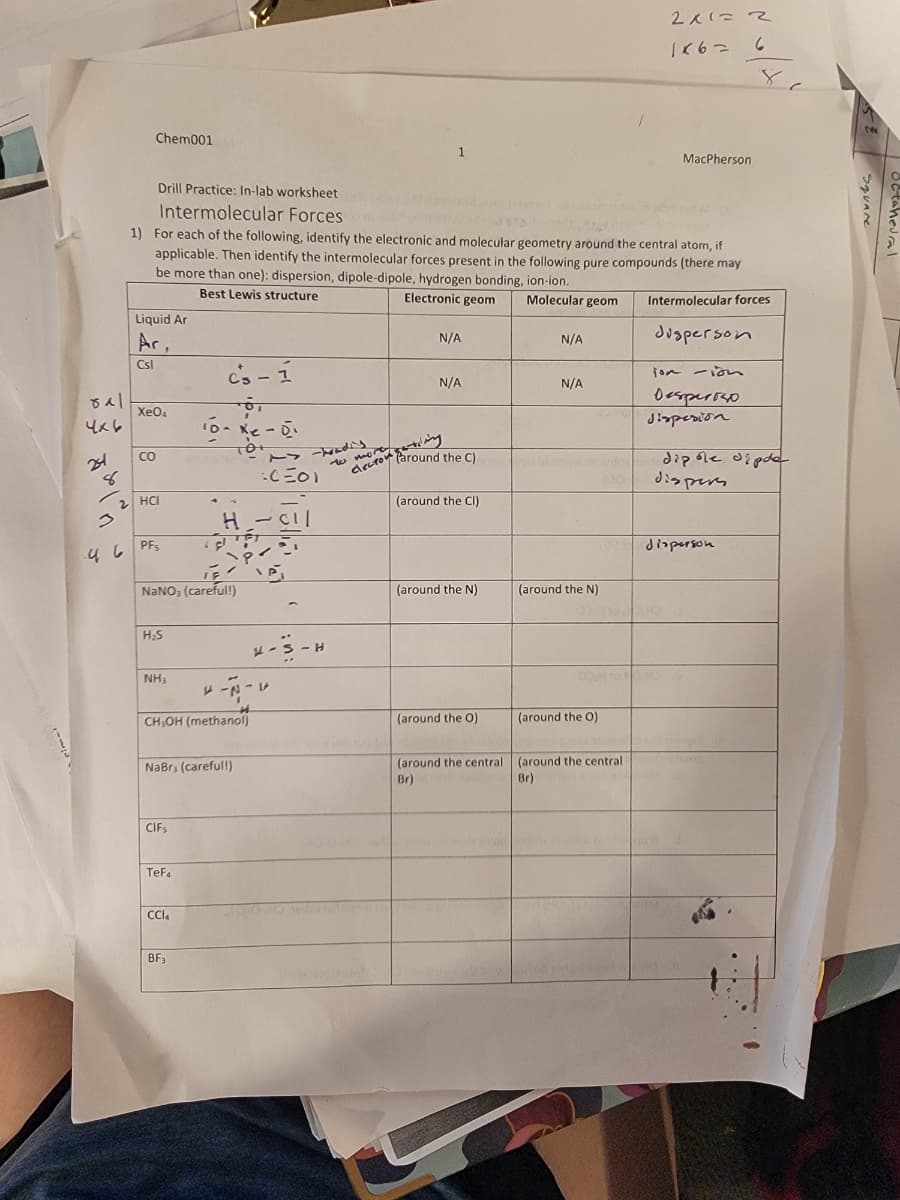 2x1= 2
1x6= 6
8
Octahedral
square
Chem001
1
MacPherson
Drill Practice: In-lab worksheet
Intermolecular Forces
1) For each of the following, identify the electronic and molecular geometry around the central atom, if
applicable. Then identify the intermolecular forces present in the following pure compounds (there may
be more than one): dispersion, dipole-dipole, hydrogen bonding, ion-ion.
Best Lewis structure Electronic geom Molecular geom Intermolecular forces
Liquid Ar
Ar N/A N/A
CsI
Cs - I N/A N/A ion - ion
4x6 XeO₄ dispesion
O - Xe - O
O
CO (around the C) dipole dipole
:C≡O|
8
32 HCl (around the Cl)
H - Cl|
PF₅ disperson
F F F
P
F F
NaNO₃ (careful!) (around the N) (around the N)
H₂S
H - S - H
NH₃
H - N - H
H
CH₃OH (methanol) (around the O) (around the O)
NaBr₃ (careful!) (around the central (around the central
Br) Br)
ClF₅
TeF₄
CCl₄
BF₃